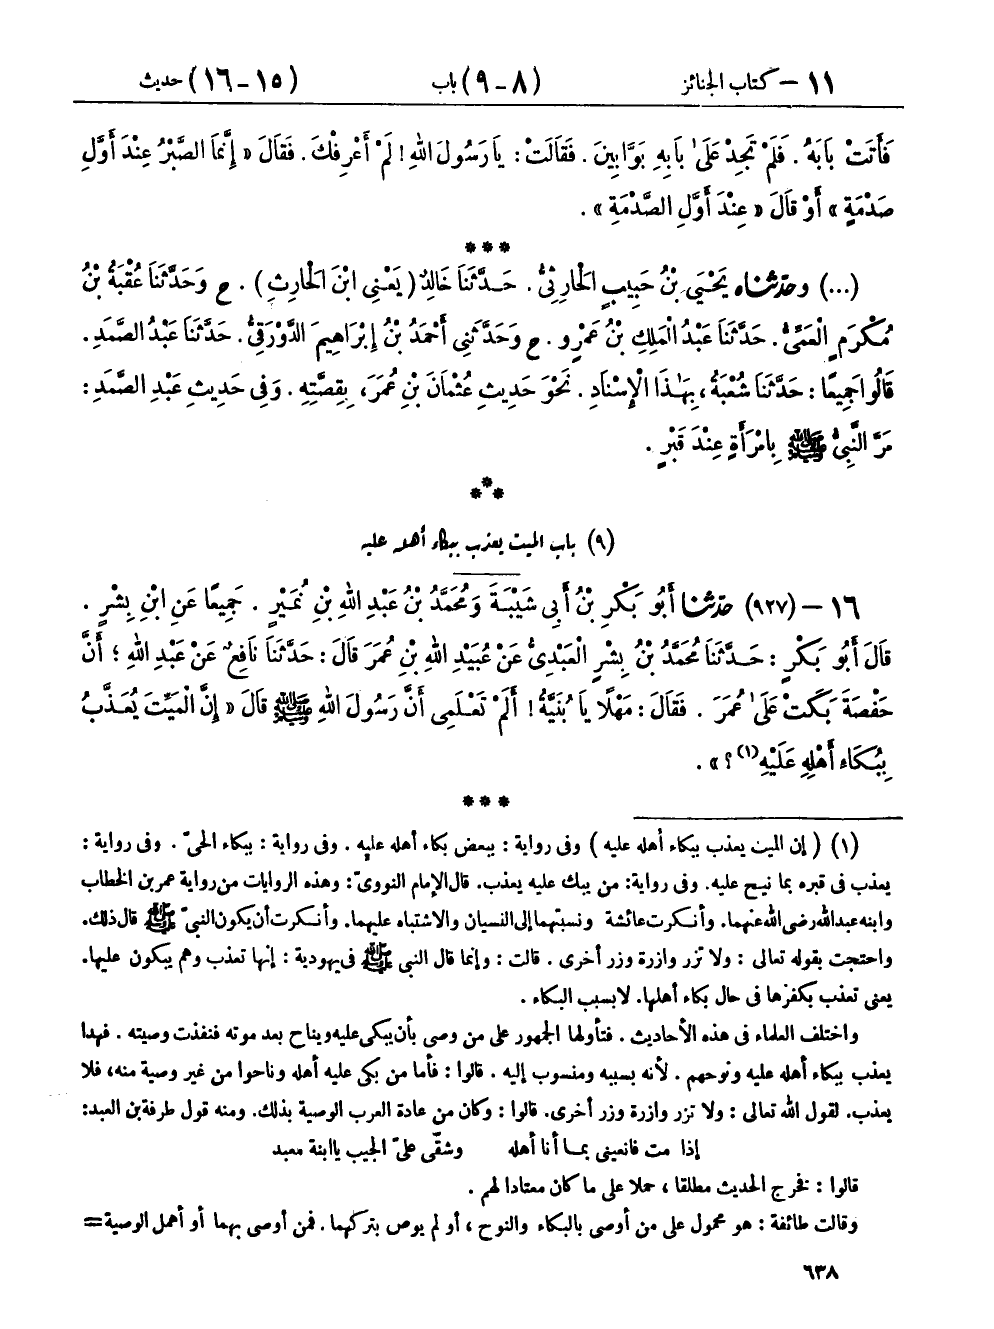 ١١ – كتاب الجنائز (٨ - ٩) باب (١٥ - ١٦) حديث
فَأَتَتْ بَابَهُ . فَلَمْ تَجِدْ عَلَىٰ بَابِهِ بَوَّابِينَ . فَقَالَتْ : يَا رَسُولَ اللهِ ! لَمْ أَعْرِفْكَ . فَقَالَ « إِنَّمَا الصَّبْرُ عِنْدَ أَوَّلِ
صَدْمَةٍ » أَوْ قَالَ « عِنْدَ أَوَّلِ الصَّدْمَةِ » .
***
(...) وحدثناه يَحْيَى بْنُ حَبِيبٍ الْحَارِثِيُّ . حَدَّثَنَا خَالِدٌ ( يَعْنِي ابْنَ الْحَارِثِ ) . ح وَحَدَّثَنَا عُقْبَةُ بْنُ
مُكْرَمٍ الْعَمِّيُّ . حَدَّثَنَا عَبْدُ الْمَلِكِ بْنُ عَمْرٍو . ح وَحَدَّثَنِي أَحْمَدُ بْنُ إِبْرَاهِيمَ الدَّوْرَقِيُّ . حَدَّثَنَا عَبْدُ الصَّمَدِ .
قَالُوا جَمِيعًا : حَدَّثَنَا شُعْبَةُ ، بِهَٰذَا الْإِسْنَادِ . نَحْوَ حَدِيثِ عُثْمَانَ بْنِ عُمَرَ ، بِقِصَّتِهِ . وَفِي حَدِيثِ عَبْدِ الصَّمَدِ :
مَرَّ النَّبِيُّ ﷺ بِامْرَأَةٍ عِنْدَ قَبْرٍ .
***
(٩) باب الميت يعذب ببكاء أهله عليه
١٦ – (٩٢٧) حدثنا أَبُو بَكْرِ بْنُ أَبِي شَيْبَةَ وَمُحَمَّدُ بْنُ عَبْدِ اللهِ بْنِ نُمَيْرٍ . جَمِيعًا عَنِ ابْنِ بِشْرٍ .
قَالَ أَبُو بَكْرٍ : حَدَّثَنَا مُحَمَّدُ بْنُ بِشْرٍ الْعَبْدِيُّ عَنْ عُبَيْدِ اللهِ بْنِ عُمَرَ قَالَ : حَدَّثَنَا نَافِعٌ عَنْ عَبْدِ اللهِ ؛ أَنَّ
حَفْصَةَ بَكَتْ عَلَىٰ عُمَرَ . فَقَالَ : مَهْلًا يَا بُنَيَّةُ ! أَلَمْ تَعْلَمِي أَنَّ رَسُولَ اللهِ ﷺ قَالَ « إِنَّ الْمَيِّتَ يُعَذَّبُ
بِبُكَاءِ أَهْلِهِ عَلَيْهِ(١) ؟ » .
***
(١) ( إن الميت يعذب ببكاء أهله عليه ) وفى رواية : ببعض بكاء أهله عليه . وفى رواية : ببكاء الحىّ . وفى رواية :
يعذب فى قبره بما نيح عليه. وفى رواية: من يبك عليه يعذب. قال الإمام النووىّ: وهذه الروايات من رواية عمر بن الخطاب
وابنه عبدالله رضى الله عنهما. وأنكرت عائشة ونسبتهما إلى النسيان والاشتباه عليهما. وأنكرت أن يكون النبىّ ﷺ قال ذلك.
واحتجت بقوله تعالى : ولا تزر وازرة وزر أخرى . قالت : وإنما قال النبى ﷺ فى يهودية : إنها تعذب وهم يبكون عليها.
يعنى تعذب بكفرها فى حال بكاء أهلها. لا بسبب البكاء .
واختلف العلماء فى هذه الأحاديث . فتأولها الجمهور على من وصى بأن يبكى عليه ويناح بعد موته فنفذت وصيته . فهذا
يعذب ببكاء أهله عليه ونوحهم . لأنه بسببه ومنسوب إليه . قالوا : فأما من بكى عليه أهله وناحوا من غير وصية منه، فلا
يعذب. لقول الله تعالى : ولا تزر وازرة وزر أخرى. قالوا : وكان من عادة العرب الوصية بذلك. ومنه قول طرفة بن العبد:
إذا مت فانعينى بمـا أنا أهله وشقّى علىّ الجيب يا ابنة معبد
قالوا : فخرج الحديث مطلقا ، حملا على ما كان معتادا لهم .
وقالت طائفة : هو محمول على من أوصى بالبكاء والنوح ، أو لم يوص بتركهما . فمن أوصى بهما أو أهمل الوصية =
٦٣٨